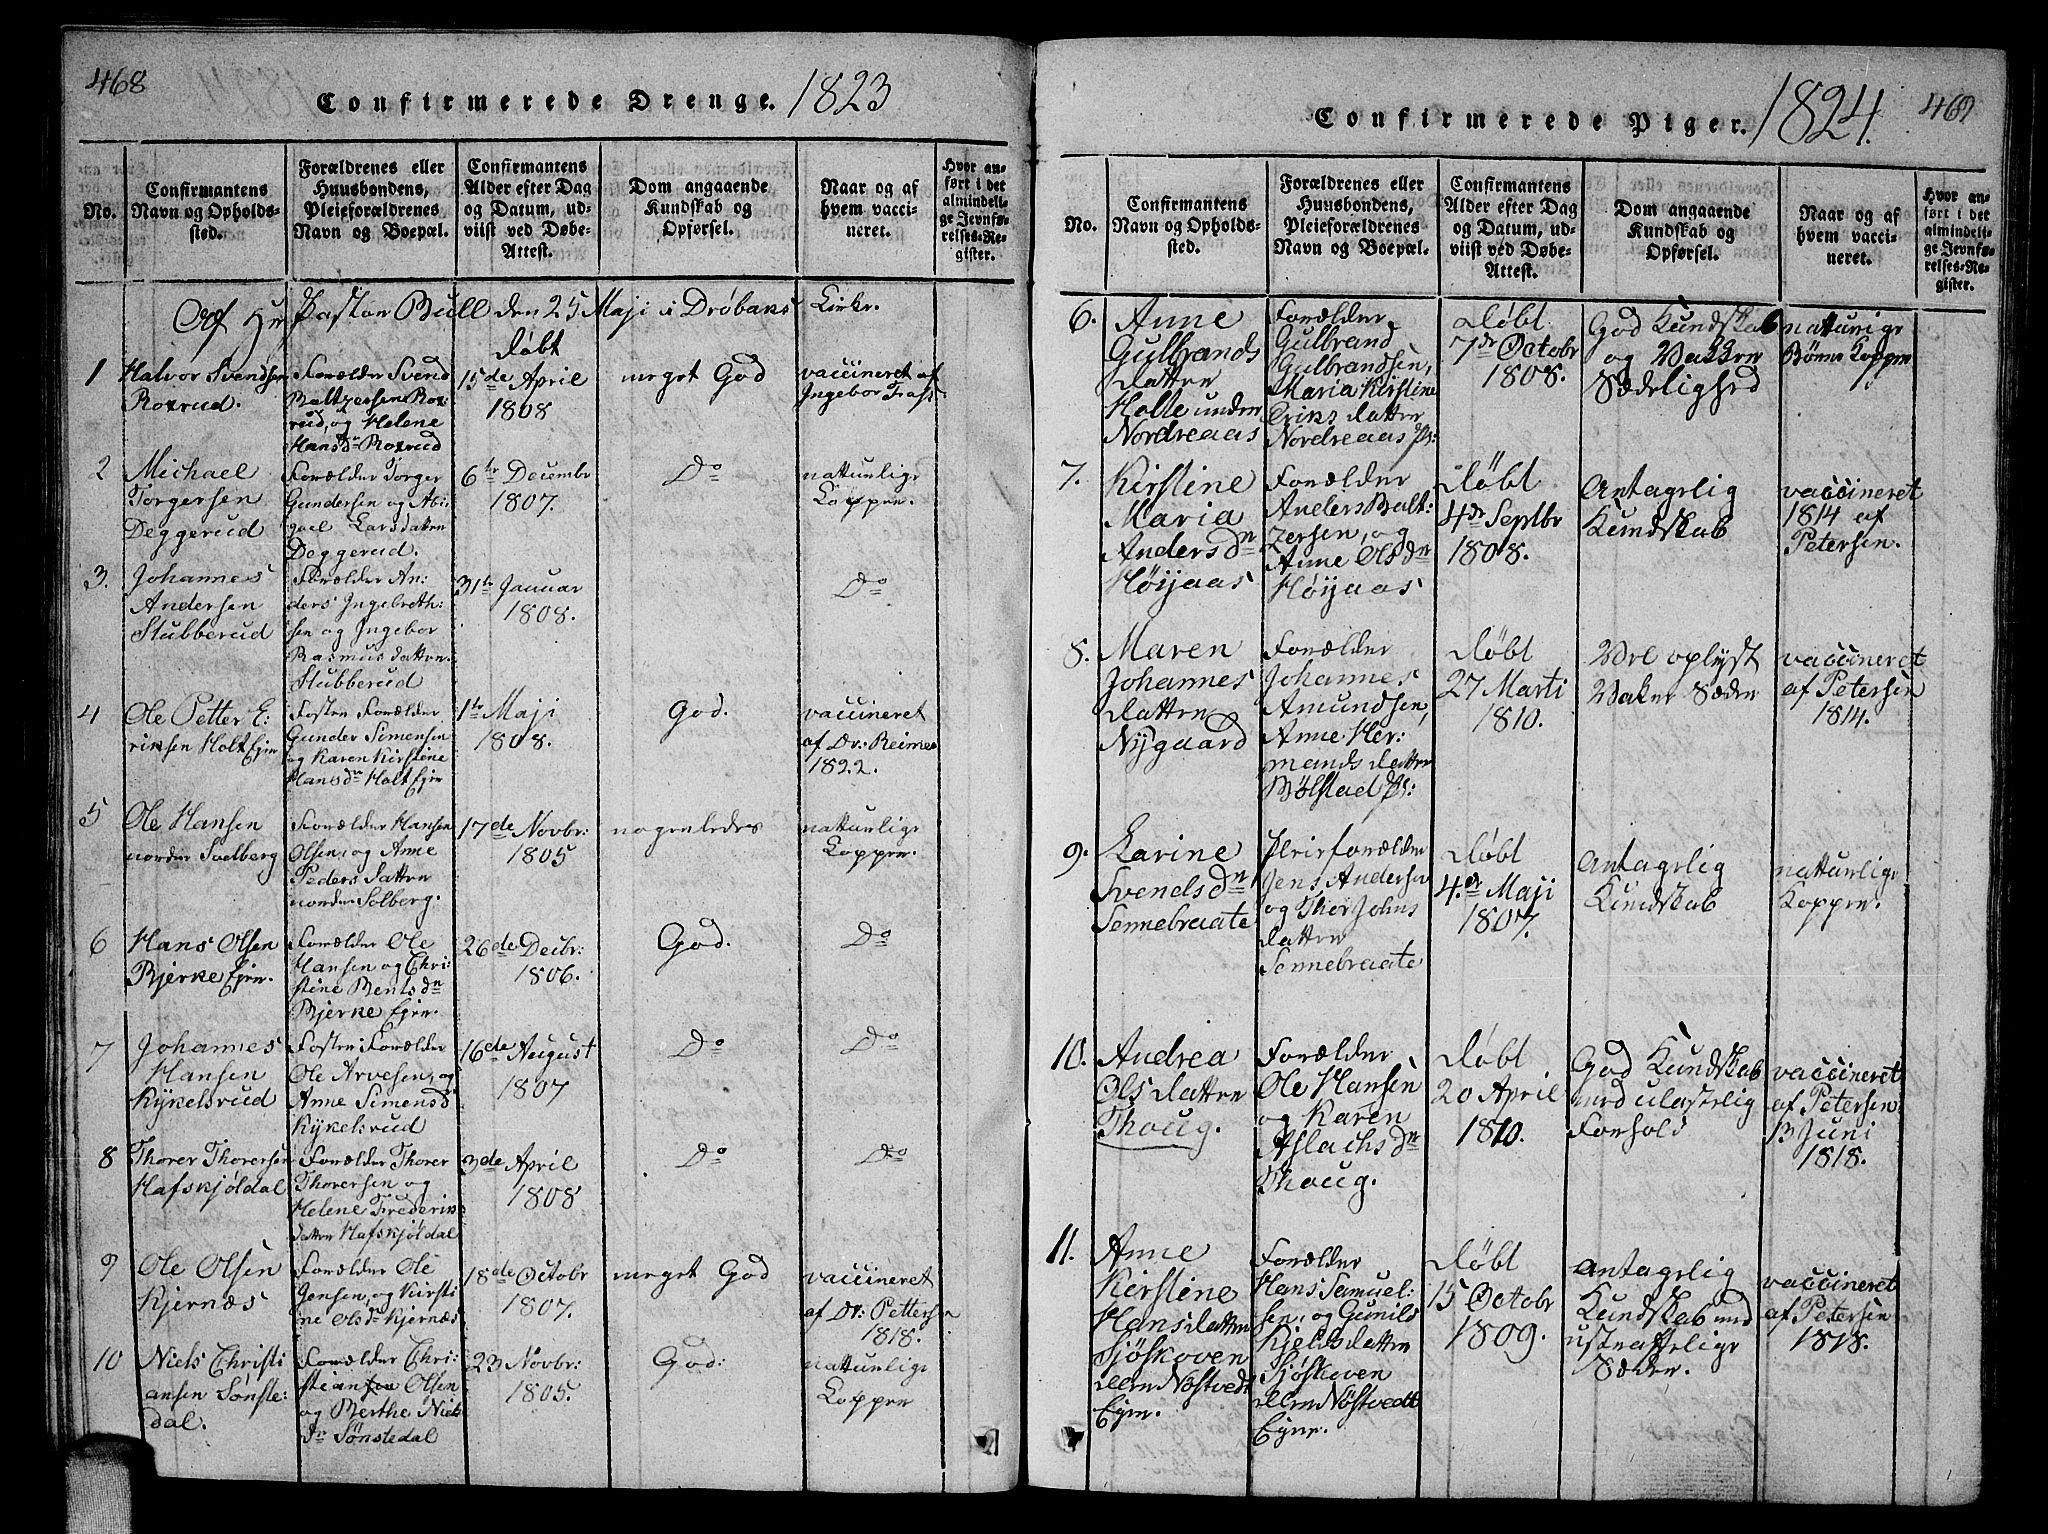 468
Confirmerede Drenge. 1823
No.
Confirmantens
Navn og Opholds-
sted.
Forældrenes eller
Huusbondens,
Pleieforældrenes
Navn og Boepæl.
Confirmantens
Alder efter Dag
og Datum, ud-
viist ved Døbe-
Attest.
Dom angaaende
Kundskab og
Opførsel.
Naar og af
hvem vacci-
neret.
Hvor an-
ført i det
almindeli-
ge Jevnfø-
relses-Re-
gister.
Af Hr Pastor Bull den 25 Maji i Drøbaks Kirke.
Døbt
1
Halvor Svendsen
Roxrud.
Forælder Svend
Baltzersen Rox:
rud, og Helene
Hansdr Roxrud
15de April
1808
meget God
vaccineret af
Ingebor Trafs
2
Michael
Torgersen
Deggerud
Forælder Torger
Gundersen og Abi:
gael Larsdatter
Deggerud.
6te Decembr
1807.
Do
naturlige
Kopper.
3.
Johannes
Andersen
Stubberud
Forælder An:
ders Ingebreth:
sen og Ingebor
Rasmusdatter
Stubberud
31te Januar
1808.
Do
4
Ole Petter E:
riksen Holt Ejer
Foster Forælder
Gunder Simensen
og Karen Kirstine
Hansdr Holt Ejer
1te Maji
1808.
God.
vaccineret
af Dr: Reimer
1822.
5
Ole Hansen
norder Solberg
Forælder Hansen
Olsen, og Anne
Peders Datter
norder Solberg.
17de Novbr:
1805
nogenledes
naturlige
Kopper.
6
Hans Olsen
Bjerke Ejer.
Forælder Ole
Hansen og Chri:
stine Bentsdr
Bjerke Ejer.
26de Decbr:
1806.
God.
Do
7
Johannes
Hansen
Kykelsrud
Foster Forælder
Ole Arvesen, og
Anne Simensd
Kykelsrud
16de August
1807
Do
Do
8
Thorer Thorersen
Hafskjøldal
Forælder Thorer
Thorersen og
Helene Frederiks
datter Hafskjøldal
3de April
1808
Do
Do
9
Ole Olsen
Kjernæs
Forælder Ole
Jensen, og Kirsti
ne Olsdr Kjernæs
18de Octobr
1807.
meget God
vaccineret
af Dr: Pettersen
1818.
10
Niels Christi
ansen Sønste:
dal.
Forælder Chri:
stian Olsen
og Berthe Niels
Dr Sønstedal
23 Novbr:
1805.
God:
naturlige
Kopper
Confirmerede Piger. 1824.
469
No.
Confirmantens
Navn og Opholds-
sted.
Forældrenes eller
Huusbondens,
Pleieforældrenes
Navn og Boepæl.
Confirmantens
Alder efter Dag
og Datum, ud-
viist ved Døbe-
Attest.
Dom angaaende
Kundskab og
Opførsel.
Naar og af
hvem vacci-
neret.
Hvor an-
ført i det
almindeli-
ge Jevnfø-
relses-Re-
gister.
6.
Anne
Gulbrands
datter
Holte under
Nordreaas
Forælder
Gulbrand
Gulbrandsen,
Maria Kirstine
Eriks datter
Nordreaas Ps:
Døbt
7de Octobr
1808.
God Kundskab
og Vakker
Sædelighed
naturige
Børne Kopper
7.
Kirstine
Maria
Andersdr
Høyaas
Forælder
Anders Balt:
zersen, og
Anne Olsdr
Høyaas
Døbt
4de Septbr
1808.
Antagelig
Kundskab
vaccineret
1814 af
Petersen.
8.
Maren
Johannes
datter
Nygaard
Forælder
Johannes
Amundsen,
Anne Her:
mandsdatter
Bølstad Ps:
Døbt
27 Marti
1810.
Vel oplyst
Vaker Sæder
vaccineret
af Petersen
1814.
9.
Larine
Svendsdr
Sennebraate
Pleieforælder
Jens Andersen
og Thor Johns
datter
Sennebraate
Døbt
4de Maji
1807.
Antagelig
Kundskab
naturlige
Kopper.
10.
Andrea
Ols datter
Thoug.
Forælder
Ole Hansen
og Karen
Aslachsdr
Thoug.
Døbt
20 April
1810.
God Kundskab
med ulastelig
Forhold
vaccineret
af Petersen
13 Juni
1818.
11.
Anne
Kirstine
Hansdatter
Sjøskoven
Ejer.
Forælder
Hans Samuel:
sen, og Gunild
Kjeldsdatter
Sjøskoven
Nøstvedt
Ejer.
Døbt
15 Octobr
1809.
antagelig
Kundskab med
ustraffelige
Sæder.
vaccineret
af Petersen
1818.